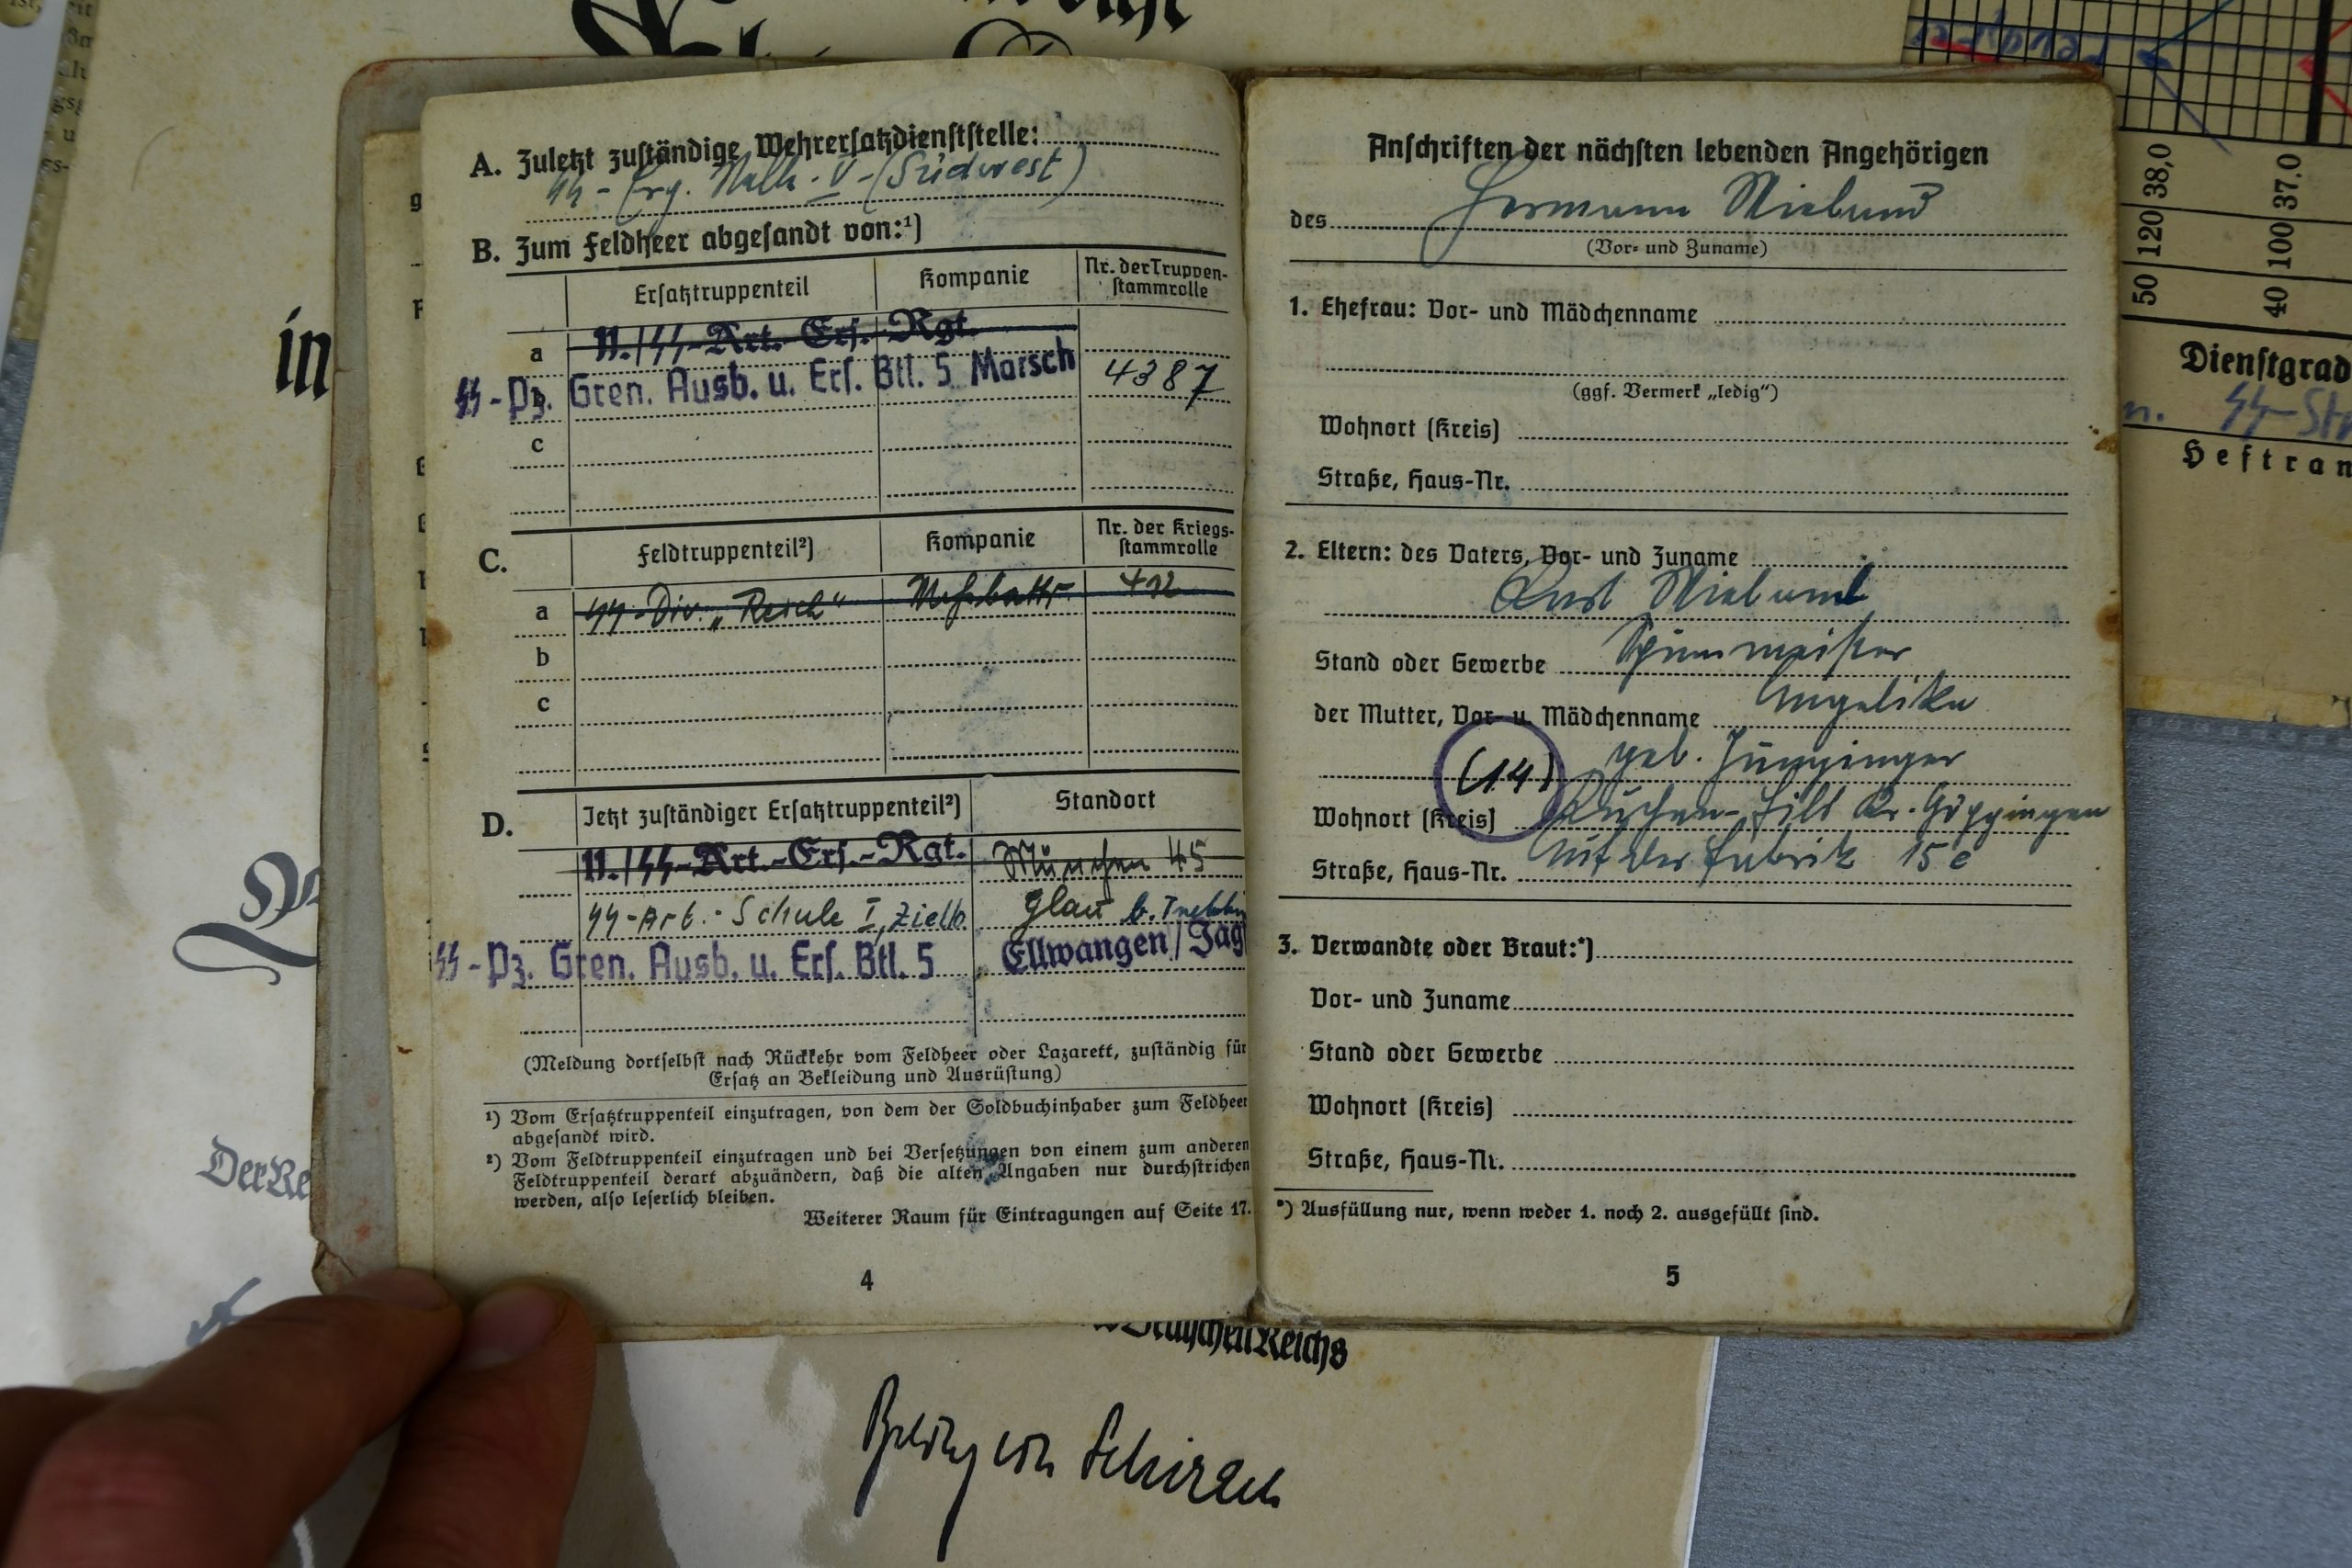 A. Zuletzt zuständige Wehrersatzdienststelle:
SS - Erg. V - (Südwest)
B. Zum Feldheer abgesandt von:¹)
Ersatztruppenteil Kompanie Nr. der Truppen-
stammrolle
a 11./SS-Art.-Ers.-Rgt.
b SS-Pz. Gren. Ausb. u. Ers. Btl. 5 Marsch 4387
c
C. Feldtruppenteil²) Kompanie Nr. der Kriegs-
stammrolle
a SS-Div. „Reich“ 412
b
c
D. Jetzt zuständiger Ersatztruppenteil²) Standort
11./SS-Art.-Ers.-Rgt. München 45
SS-Art.-Schule I, Glau b.
SS-Pz. Gren. Ausb. u. Ers. Btl. 5 Ellwangen/Jag
(Meldung dortselbst nach Rückkehr vom Feldheer oder Lazarett, zuständig für
Ersatz an Bekleidung und Ausrüstung)
¹) Vom Ersatztruppenteil einzutragen, von dem der Soldbuchinhaber zum Feldheer
abgesandt wird.
²) Vom Feldtruppenteil einzutragen und bei Versetzungen von einem zum anderen
Feldtruppenteil derart abzuändern, daß die alten Angaben nur durchstrichen
werden, also leserlich bleiben.
Weiterer Raum für Eintragungen auf Seite 17.
4
Anschriften der nächsten lebenden Angehörigen
des Hermann
(Vor- und Zuname)
1. Ehefrau: Vor- und Mädchenname
(ggf. Vermerk „ledig“)
Wohnort (Kreis)
Straße, Haus-Nr.
2. Eltern: des Vaters, Vor- und Zuname
Stand oder Gewerbe Spinnmeister
der Mutter, Vor- u. Mädchenname Angelika
(14) geb. Junginger
Wohnort (Kreis) Kuchen-Fils Kr. Göppingen
Straße, Haus-Nr. Auf der Fabrik 15 c
3. Verwandte oder Braut:*)
Vor- und Zuname
Stand oder Gewerbe
Wohnort (Kreis)
Straße, Haus-Nr.
*) Ausfüllung nur, wenn weder 1. noch 2. ausgefüllt sind.
5
in
Der Re
Deutschen Reichs
Baldur von Schirach
50 120 38,0
40 100 37,0
Dienstgrad
SS-St
Heftran